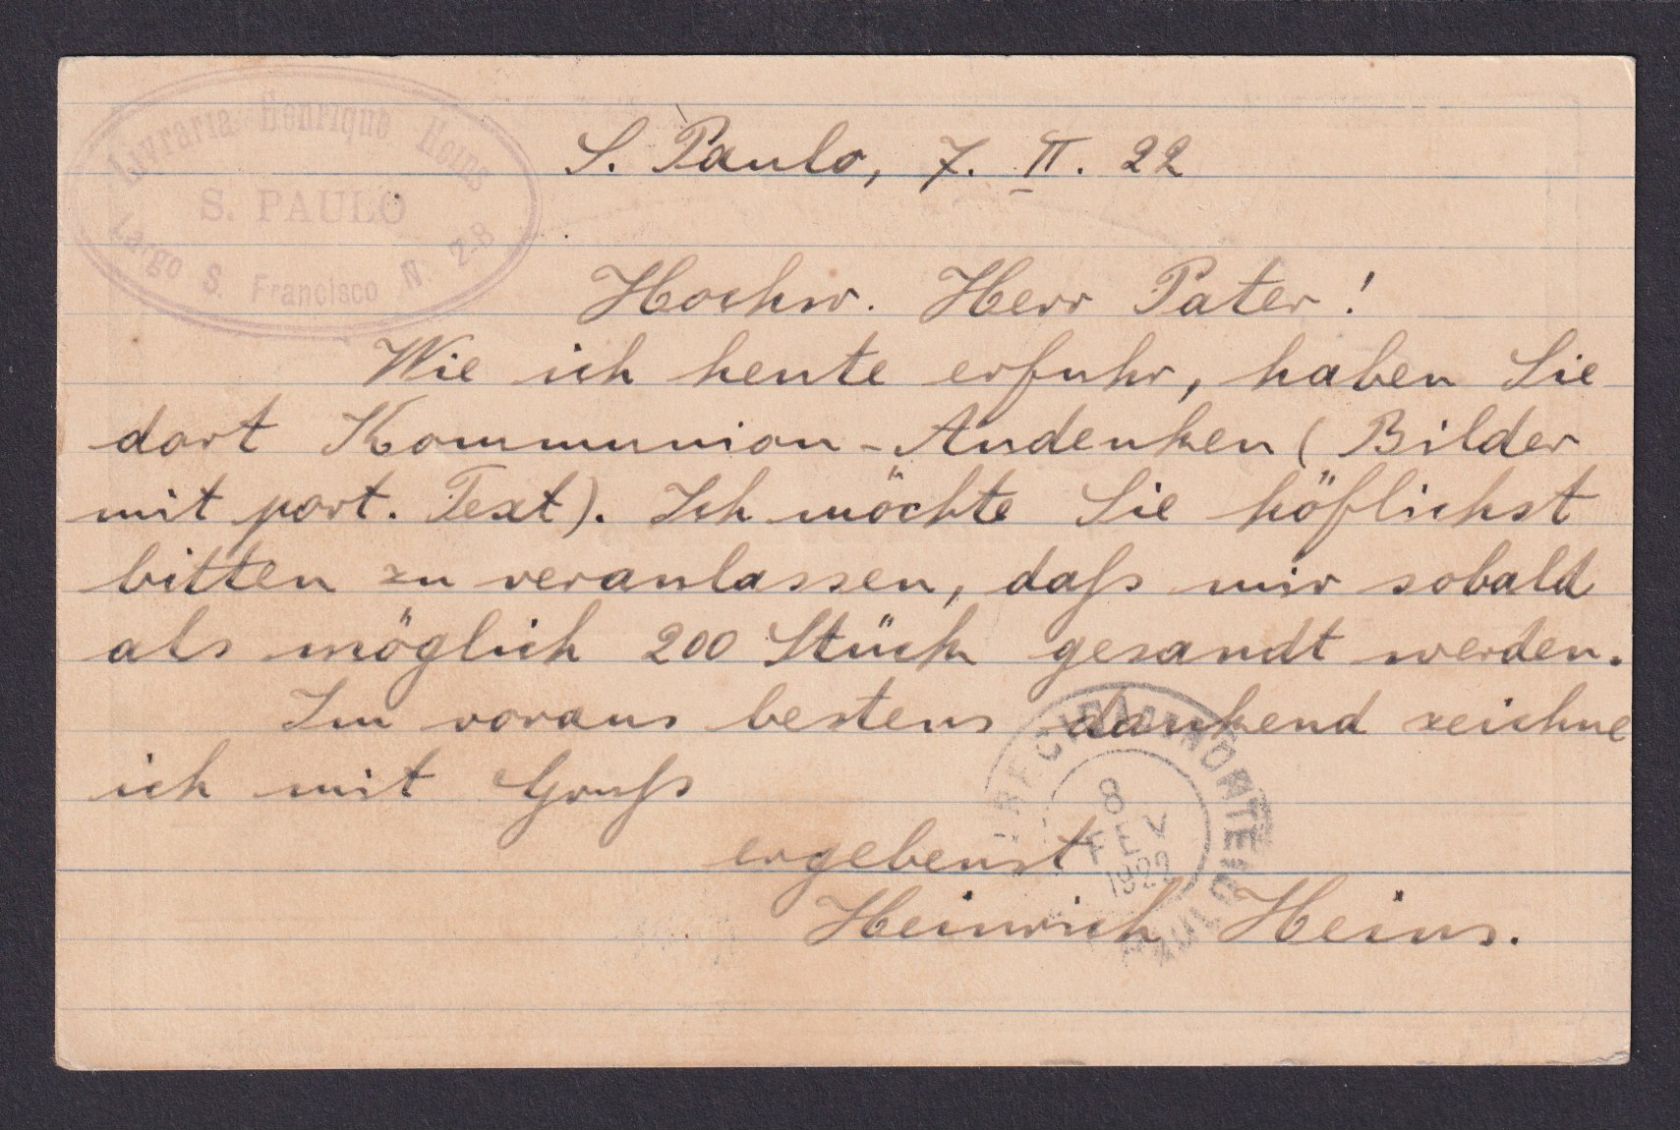 Livraria Henrique Heins
S. PAULO
Largo S. Francisco N. 2-B
S. Paulo, 7. II. 22
Hochw. Herr Pater!
Wie ich heute erfuhr, haben Sie
dort Kommunion-Andenken (Bilder
mit port. Text). Ich möchte Sie höflichst
bitten zu veranlassen, daß mir sobald
als möglich 200 Stück gesandt werden.
Im voraus bestens dankend zeichne
ich mit Gruß
8
FEV
1922
ergebenst
Heinrich Heins.